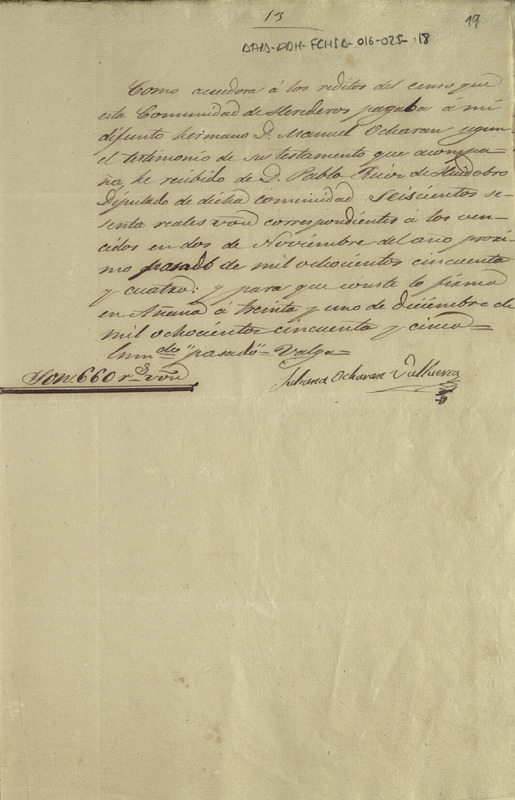 13
19
AHA-DDH-FCHSA-016-025-18
Como acredora á los reditos del censo que
esta Comunidad de Herederos pagaba á mi
difunto hermano D. Manuel Ocharan segun
el testimonio de su testamento que acompa
ña, he recibido de D. Pablo Ruiz de Huidobro
Diputado de dicha comunidad Seiscientos se-
senta reales von correspondientes a los ven-
cidos en dos de Noviembre del ano proxi-
mo pasado de mil ochocientos cincuenta
y cuatro: y para que conste lo firmo
en Anana á treinta y uno de diciembre de
mil ochocientos cincuenta y cinco=
Enmdo "pasado"= Valga=
Son..660 rs. von
Juliana Ocharan